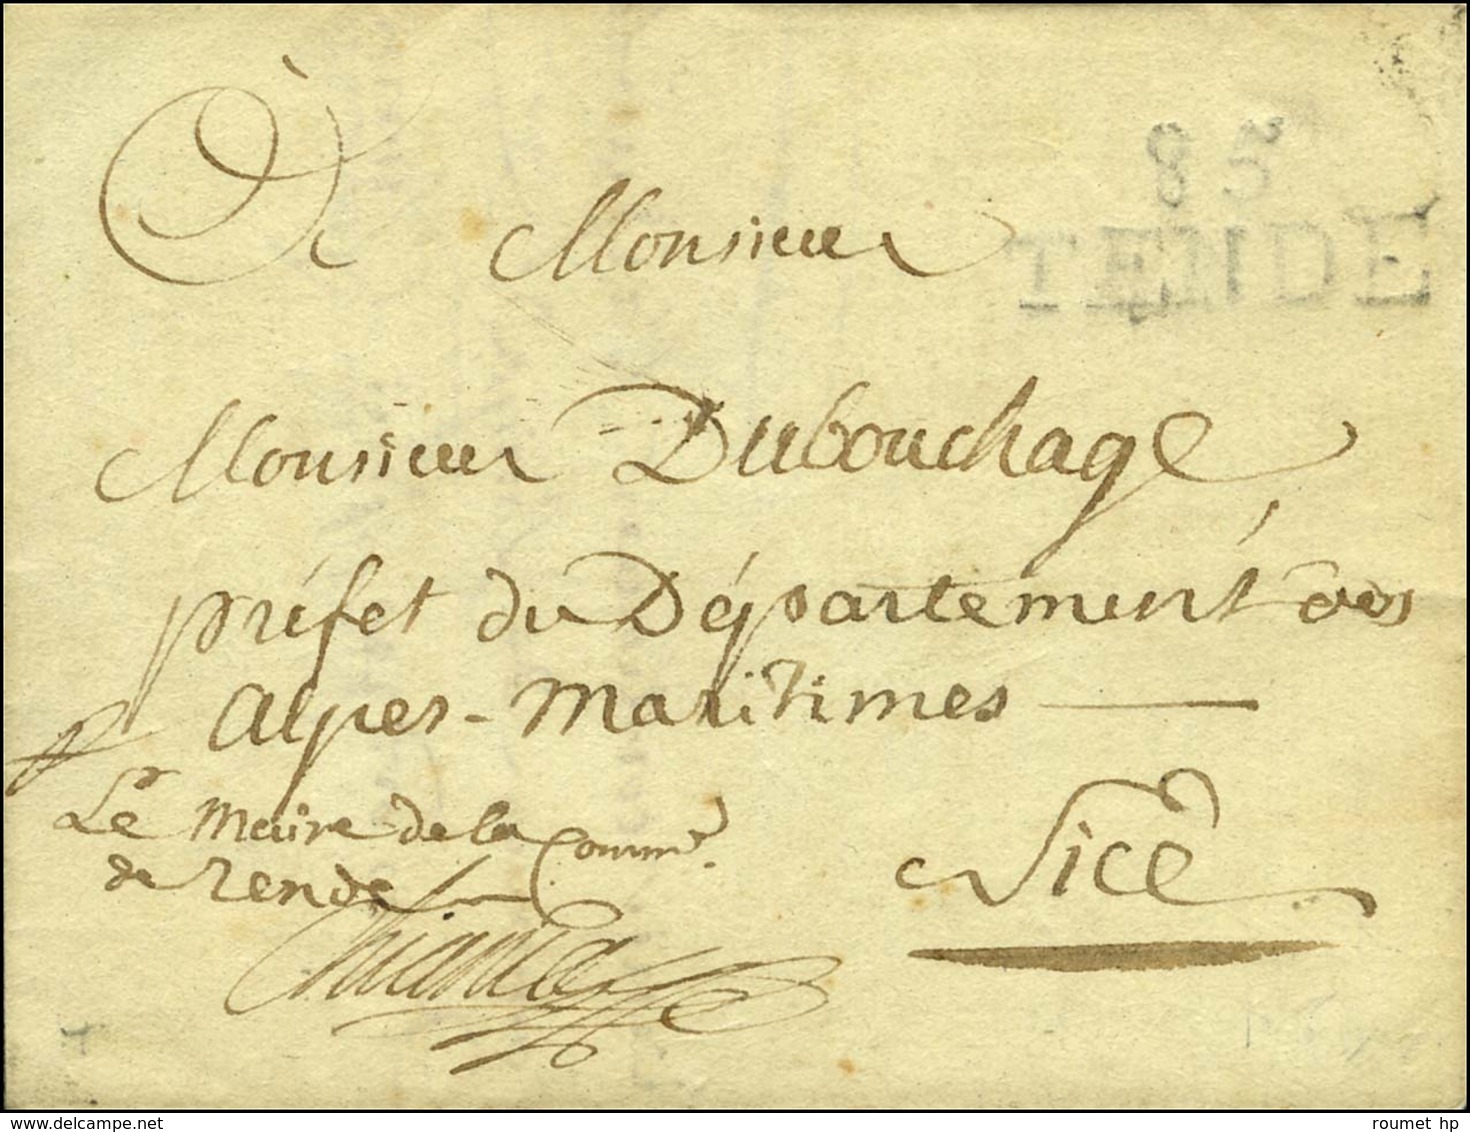 85
TENDE
A Monsieur
Monsieur Dubouchage
préfet du Département des
Alpes-maritimes
Nice
Le Maire de la Comm.e
de Tende
roumet hp